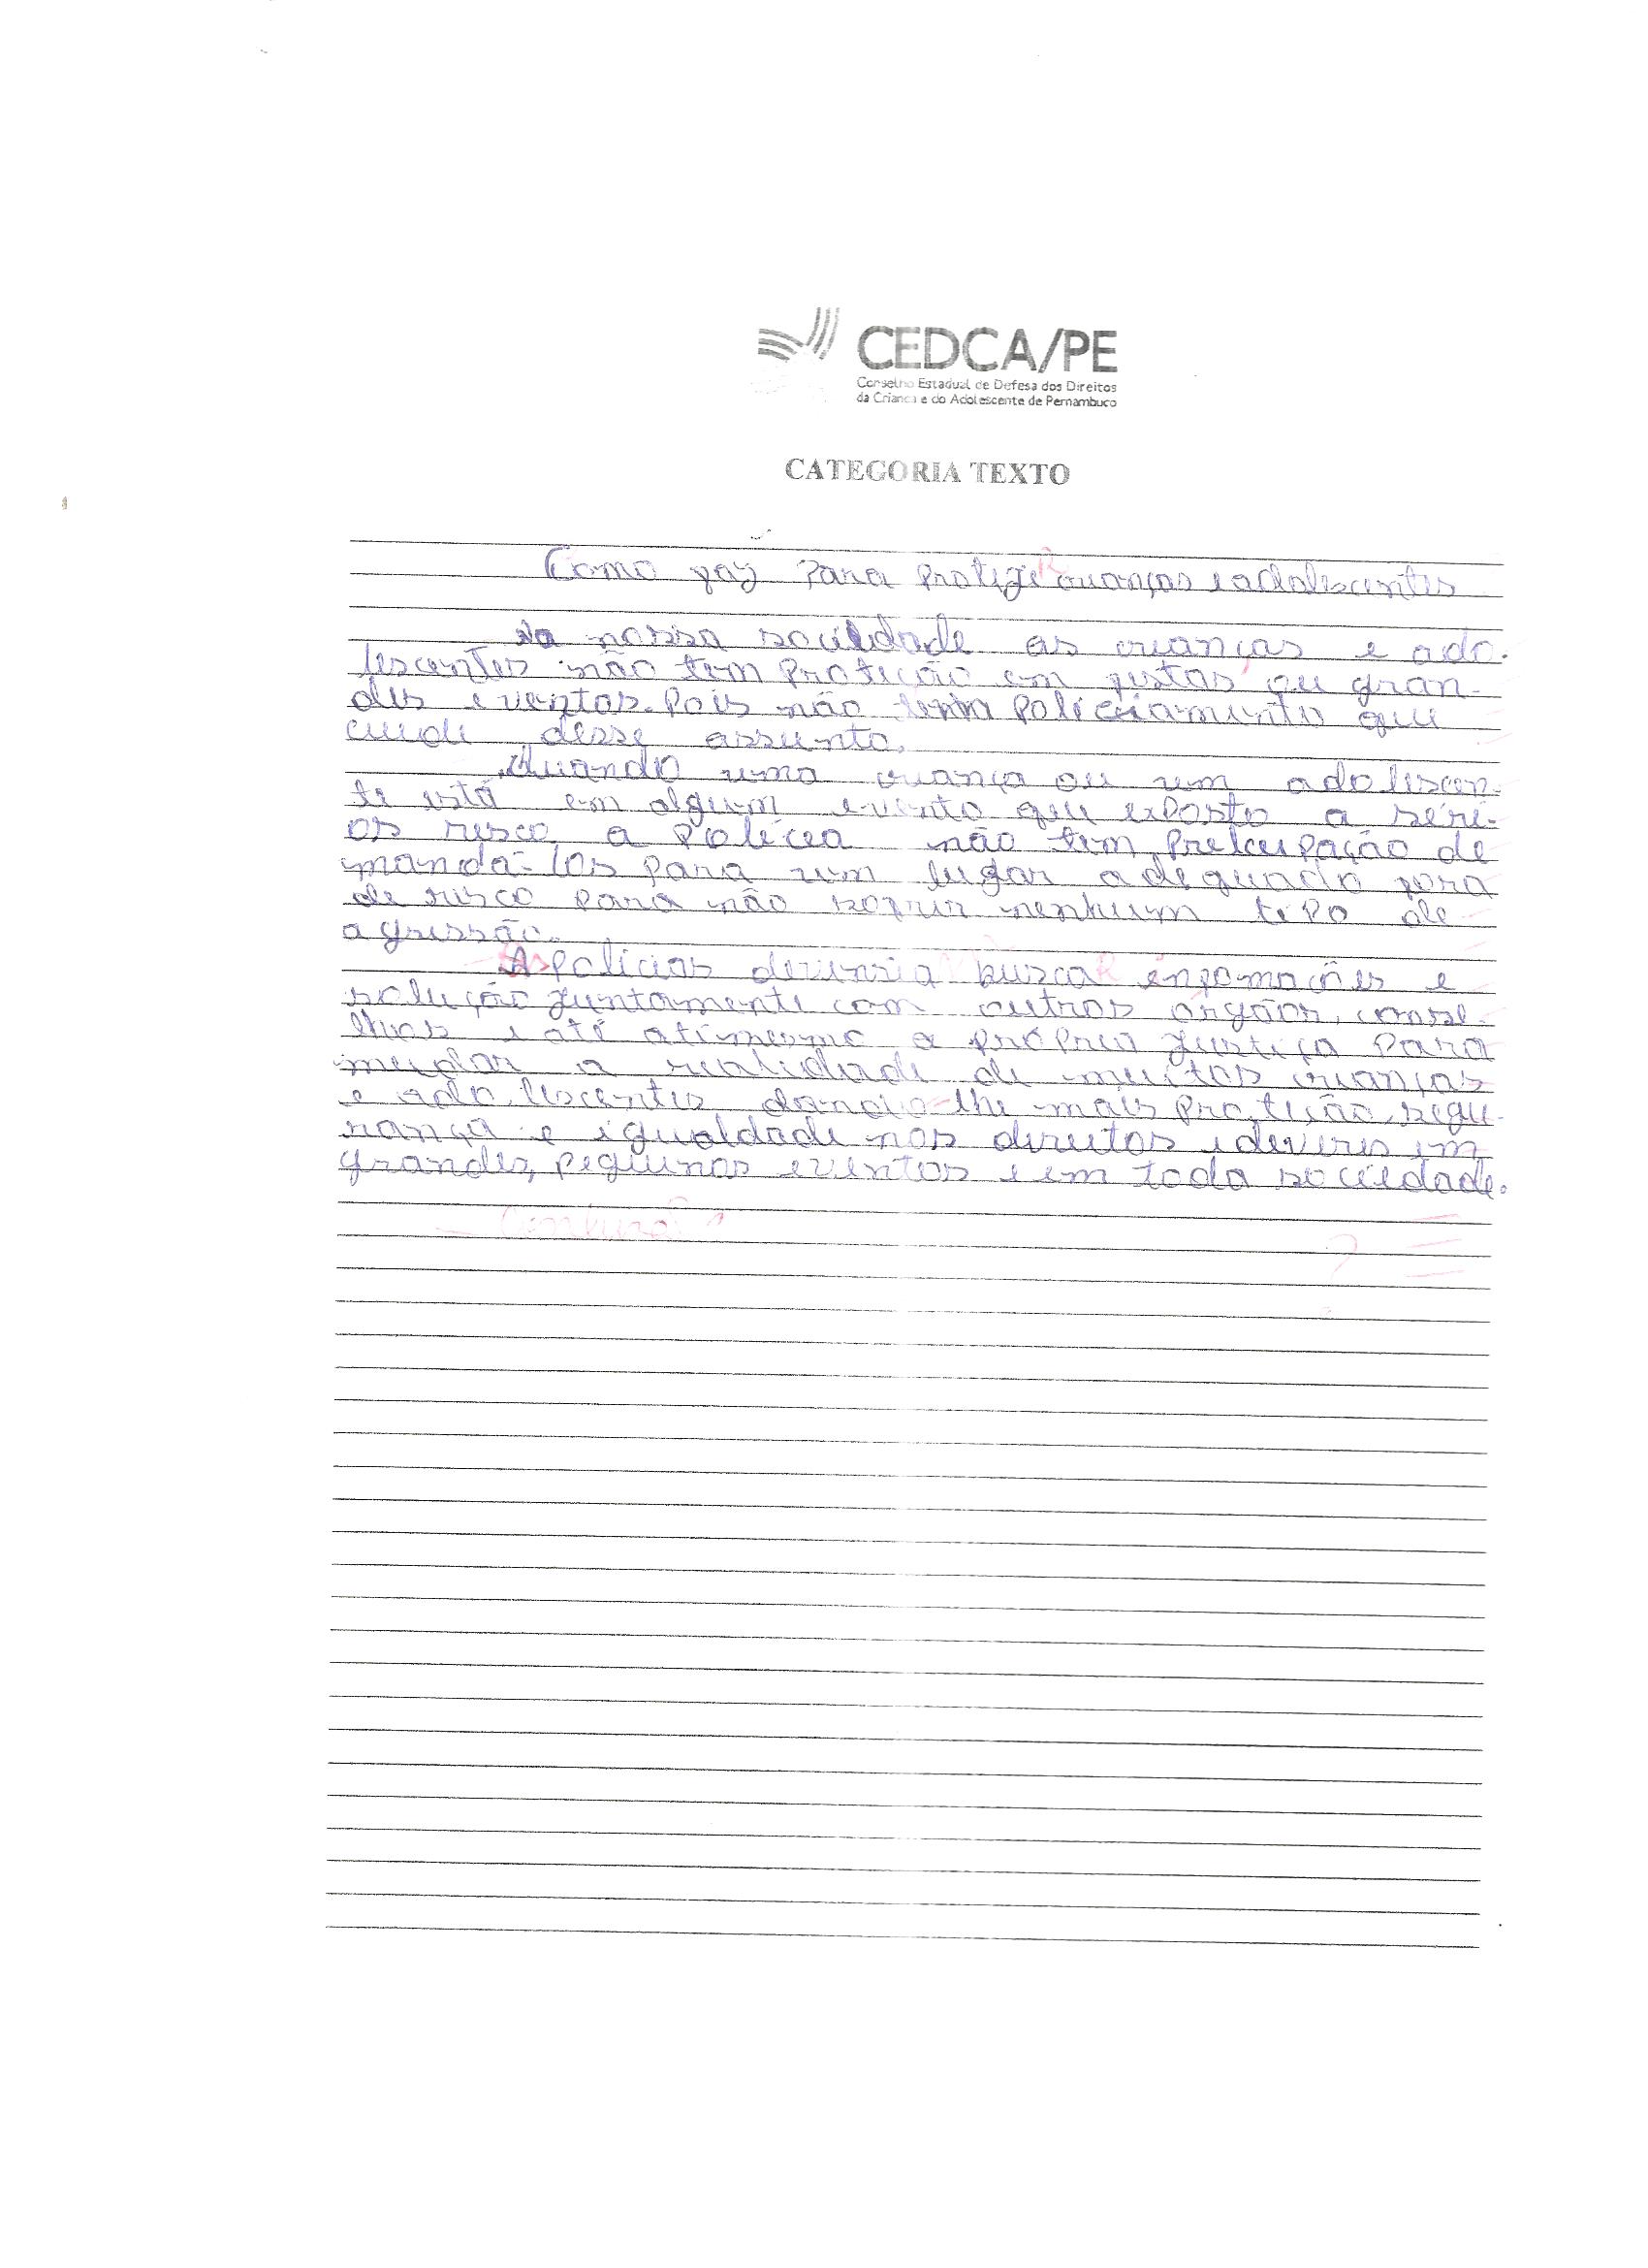 CEDCA/PE
Conselho Estadual de Defesa dos Direitos
da Criança e do Adolescente de Pernambuco
CATEGORIA TEXTO
Como faz Para Protege R crianças e adolescentes
Na nossa sociedade as crianças e ado-
lescentes não tem Proteção em festas ou gran-
des eventos. Pois não tem Policiamento que
cuide desse assunto.
Quando uma criança ou um adolescen-
te está em algum evento que exposto a séri-
os risco, a Polícia não tem Preocupação de
manda-los para um lugar adequado fora
de risco para não sofrir nenhum tipo de
agressão.
As polícias deveria busca R enfomações e
solução juntamente com outros órgãos, conse-
lhos e até atimesmo a própria justiça Para
mudar a realidade de muitas crianças
e adolescentes, dando-lhe mais proteção, segu-
rança e igualdade nos direitos e deveres em
grandes, pequenos eventos e em toda sociedade.